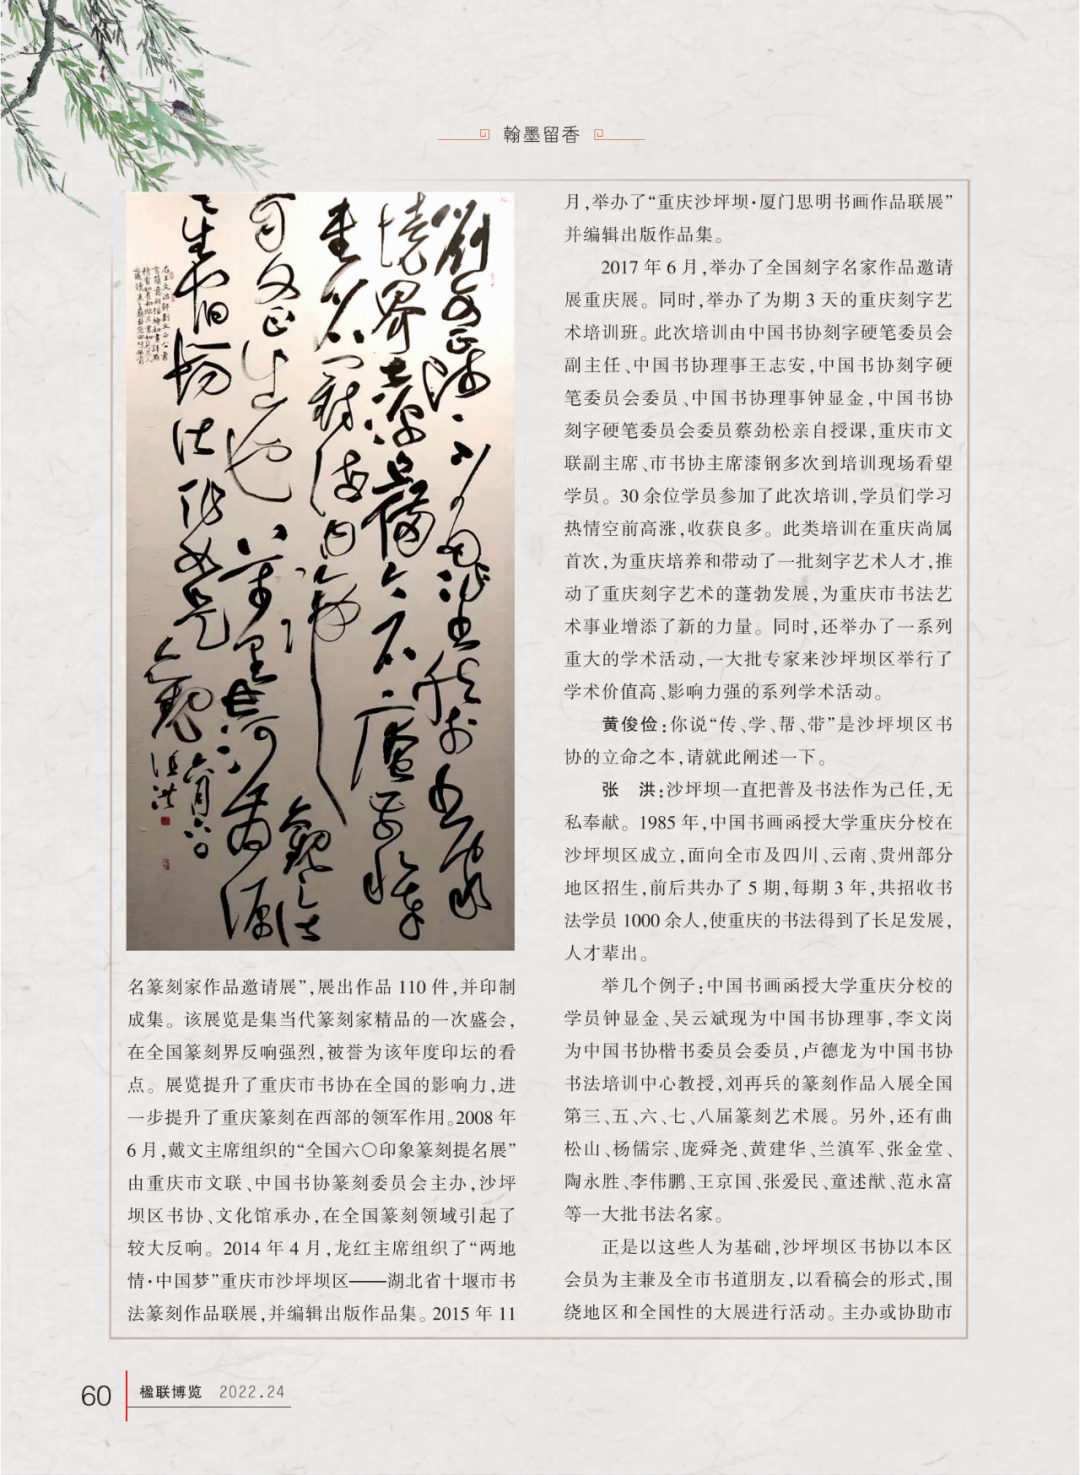 翰墨留香
名篆刻家作品邀请展”,展出作品 110 件,并印制
成集。该展览是集当代篆刻家精品的一次盛会,
在全国篆刻界反响强烈,被誉为该年度印坛的看
点。展览提升了重庆市书协在全国的影响力,进
一步提升了重庆篆刻在西部的领军作用。2008 年
6 月,戴文主席组织的“全国六〇印象篆刻提名展”
由重庆市文联、中国书协篆刻委员会主办,沙坪
坝区书协、文化馆承办,在全国篆刻领域引起了
较大反响。2014 年 4 月,龙红主席组织了“两地
情·中国梦”重庆市沙坪坝区——湖北省十堰市书
法篆刻作品联展,并编辑出版作品集。2015 年 11
月,举办了“重庆沙坪坝·厦门思明书画作品联展”
并编辑出版作品集。
2017 年 6 月,举办了全国刻字名家作品邀请
展重庆展。同时,举办了为期 3 天的重庆刻字艺
术培训班。此次培训由中国书协刻字硬笔委员会
副主任、中国书协理事王志安,中国书协刻字硬
笔委员会委员、中国书协理事钟显金,中国书协
刻字硬笔委员会委员蔡劲松亲自授课,重庆市文
联副主席、市书协主席漆钢多次到培训现场看望
学员。30 余位学员参加了此次培训,学员们学习
热情空前高涨,收获良多。此类培训在重庆尚属
首次,为重庆培养和带动了一批刻字艺术人才,推
动了重庆刻字艺术的蓬勃发展,为重庆市书法艺
术事业增添了新的力量。同时,还举办了一系列
重大的学术活动,一大批专家来沙坪坝区举行了
学术价值高、影响力强的系列学术活动。
黄俊俭:你说“传、学、帮、带”是沙坪坝区书
协的立命之本,请就此阐述一下。
张　洪:沙坪坝一直把普及书法作为己任,无
私奉献。1985 年,中国书画函授大学重庆分校在
沙坪坝区成立,面向全市及四川、云南、贵州部分
地区招生,前后共办了 5 期,每期 3 年,共招收书
法学员 1000 余人,使重庆的书法得到了长足发展,
人才辈出。
举几个例子:中国书画函授大学重庆分校的
学员钟显金、吴云斌现为中国书协理事,李文岗
为中国书协楷书委员会委员,卢德龙为中国书协
书法培训中心教授,刘再兵的篆刻作品入展全国
第三、五、六、七、八届篆刻艺术展。另外,还有曲
松山、杨儒宗、庞舜尧、黄建华、兰滇军、张金堂、
陶永胜、李伟鹏、王京国、张爱民、童述猷、范永富
等一大批书法名家。
正是以这些人为基础,沙坪坝区书协以本区
会员为主兼及全市书道朋友,以看稿会的形式,围
绕地区和全国性的大展进行活动。主办或协助市
60
楹联博览 2022.24